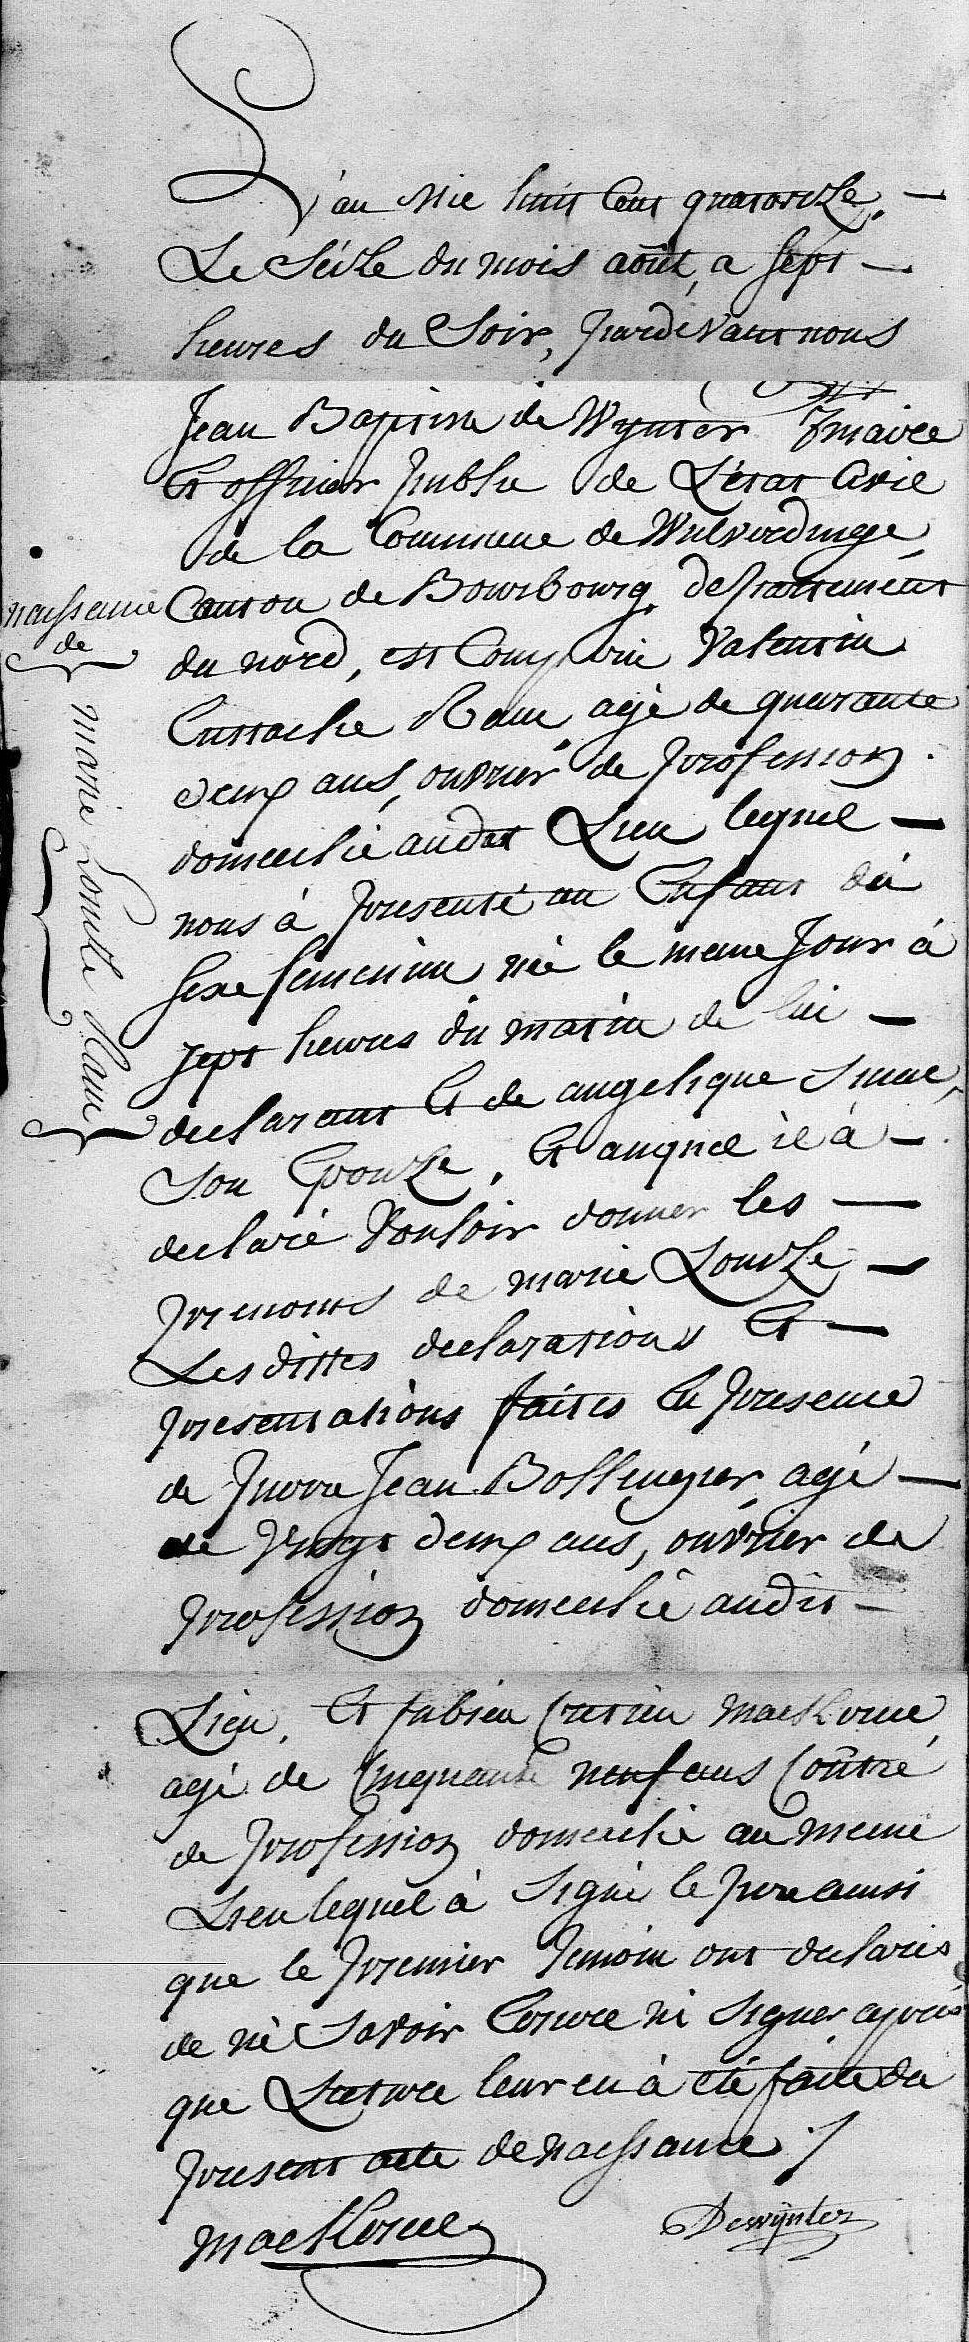 L'an mil huit cent quatorze,
Le Seize du mois août, a sept
heures du Soir, pardevant nous
Jean Baptiste de Wynter maire
Et officier public de L'état Civil
de la Commune de Wulverdinge,
naissance
de
marie Louise Ham
Canton de Bourbourg, departement
du nord, est Comparu Valentin
Eustache Ham, agé de quarante
deux ans, ouvrier de profession
domicilié audit Lieu lequel
nous à presenté un Enfant du
sexe femenin né le meme Jour à
sept heures du matin de lui
declarant Et de angelique
Son Epouze, Et auquel il à
declaré Vouloir donner les
prenoms de marie Louize
Lesdittes declarations Et
presentations faites En presence
de Pierre Jean Bollengier, agé
de Vingt deux ans, ouvrier de
profession domicilié audit
Lieu, Et fabien mackorue,
agé de Cinquante neuf ans Contré
de profession domicilié au meme
Lieu lequel à Signé le pere ainsi
que le premier temoin ont declarés
de né Savoir Ecrire ni Signer après
que Lecture leur en à été faite du
present acte de naissance ./
mackorue
Dewynter